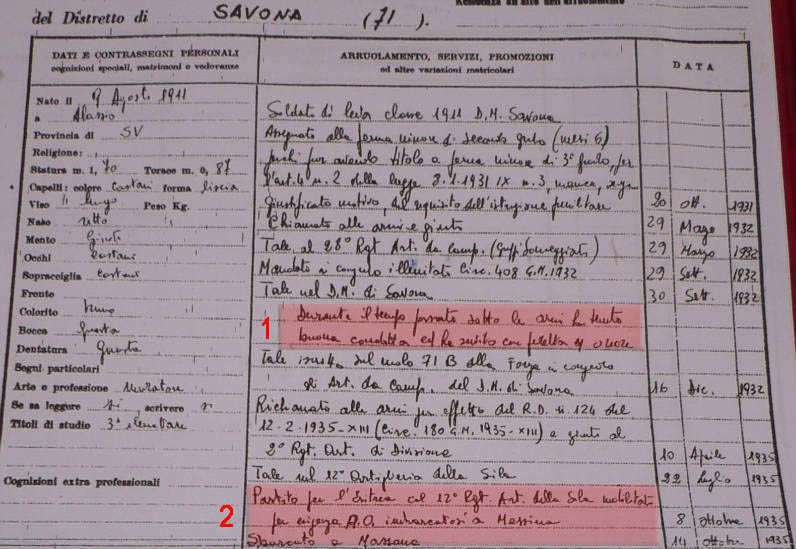 del Distretto di SAVONA (71).
DATI E CONTRASSEGNI PERSONALI
cognizioni speciali, matrimoni e vedovanze
ARRUOLAMENTO, SERVIZI, PROMOZIONI
ed altre variazioni matricolari
DATA
Nato il 9 Agosto 1911
a Alassio
Provincia di SV
Religione:
Statura m. 1, 70 Torace m. 0, 87
Capelli: colore castani forma liscia
Viso lungo Peso Kg.
Naso retto
Mento giusto
Occhi castani
Sopracciglia castane
Fronte
Colorito bruno
Bocca giusta
Dentatura guasta
Segni particolari
Arte o professione muratore
Se sa leggere si scrivere si
Titoli di studio 3ª elementare
Cognizioni extra professionali
Soldato di leva classe 1911 D.M. Savona
Assegnato alla ferma minore di secondo grado (mesi 6)
perchè pur avendo titolo a ferma minore di 3° grado, per
l'art. 4 n. 2 della legge 8.1.1931 IX n. 3, manca, senza
giustificato motivo, del requisito dell'istruzione premilitare 20 Ott. 1931
Chiamato alle armi e giunto 29 Marzo 1932
Tale al 28° Rgt Art. da Camp. (Someggiato) 29 Marzo 1932
Mandato in congedo illimitato Circ. 408 G.M. 1932 29 Sett. 1932
Tale nel D.M. di Savona 30 Sett. 1932
1 Durante il tempo passato sotto le armi ha tenuto
buona condotta ed ha servito con fedeltà ed onore
Tale iscritto sul ruolo 71 B della Forza in congedo
di Art. da Camp. del D.M. di Savona 16 Dic. 1932
Richiamato alle armi per effetto del R.D. n. 124 del
12-2-1935-XIII (Circ. 180 G.M. 1935-XIII) e giunto al
2° Rgt. Art. di Divisione 10 Aprile 1935
Tale nel 12° Artiglieria della Sila 22 Luglio 1935
2 Partito per l'Eritrea col 12° Rgt. Art. della Sila mobilitato
per esigenza A.O. imbarcatosi a Messina 8 Ottobre 1935
Sbarcato a Massaua 14 Ottobre 1935